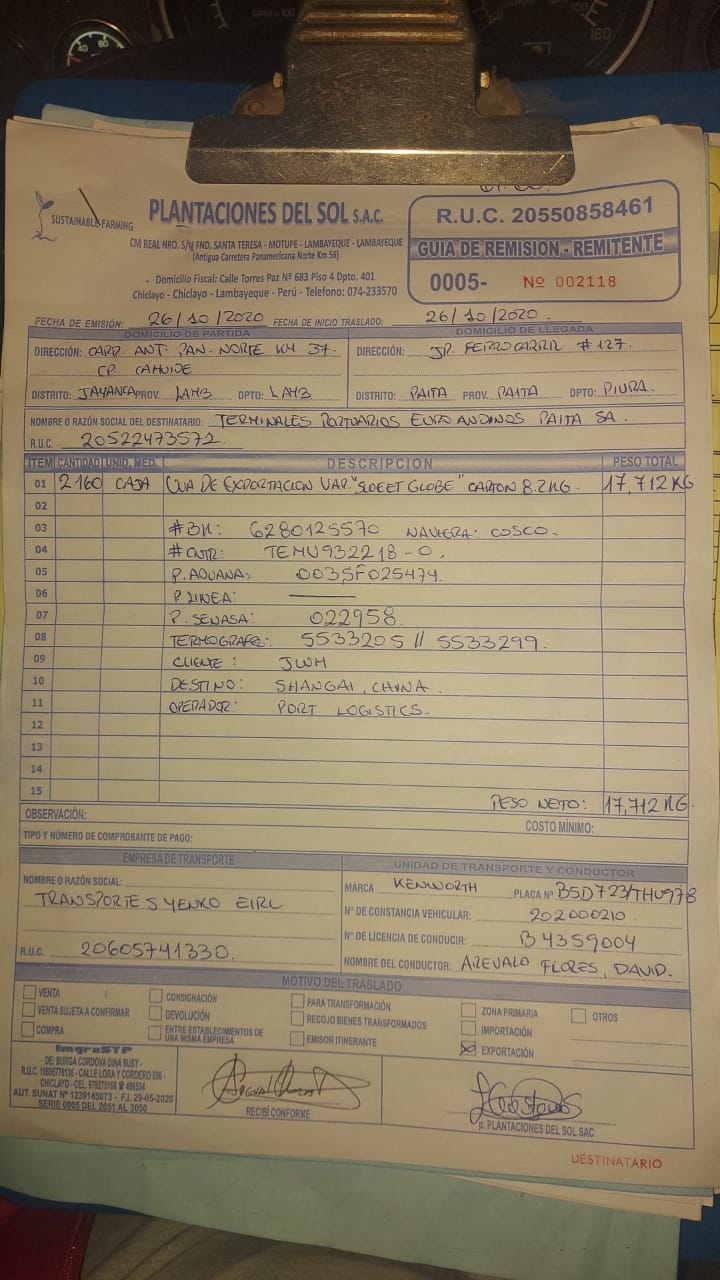 SUSTAINABLE FARMING
PLANTACIONES DEL SOL S.A.C.
CM REAL NRO. S/N FND. SANTA TERESA - MOTUPE - LAMBAYEQUE - LAMBAYEQUE
(Antigua Carretera Panamericana Norte Km 56)
Domicilio Fiscal: Calle Torres Paz Nº 683 Piso 4 Dpto. 401
Chiclayo - Chiclayo - Lambayeque - Perú - Telefono: 074-233570
R.U.C. 20550858461
GUIA DE REMISION - REMITENTE
0005- Nº 002118
FECHA DE EMISIÓN: 26/10/2020 FECHA DE INICIO TRASLADO: 26/10/2020.
DOMICILIO DE PARTIDA
DIRECCIÓN: CARD. ANT. PAN. NORTE KM 37.
CP. CAHUIDE
DISTRITO: JAYANCA PROV. LAMB DPTO: LAMB
DOMICILIO DE LLEGADA
DIRECCIÓN: JR. FERROCARRIL #127.
DISTRITO: PAITA PROV. PAITA DPTO: PIURA.
NOMBRE O RAZÓN SOCIAL DEL DESTINATARIO: TERMINALES PORTUARIOS EUROANDINOS PAITA SA.
R.U.C. 20522473572.
ITEM CANTIDAD UNID. MED. DESCRIPCION PESO TOTAL
01 2160 CAJA UVA DE EXPORTACION VAR. "SWEET GLOBE" CARTON 8.2KG. 17,712 KG
02
03 #BK: 6280125570 NAVIERA: COSCO.
04 #CNTR: TEMU932218-0.
05 P. ADUANA: 003SF025474.
06 P. LINEA: ———
07 P. SENASA: 022958.
08 TERMOGRAFO: 5533205 // 5533299.
09 CLIENTE: JWM
10 DESTINO: SHANGAI, CHINA.
11 OPERADOR: PORT LOGISTICS.
12
13
14
15 PESO NETO: 17,712 KG.
OBSERVACIÓN: COSTO MÍNIMO:
TIPO Y NÚMERO DE COMPROBANTE DE PAGO:
EMPRESA DE TRANSPORTE
NOMBRE O RAZÓN SOCIAL:
TRANSPORTES YENKO EIRL
R.U.C. 20605741330.
UNIDAD DE TRANSPORTE Y CONDUCTOR
MARCA KENWORTH PLACA Nº B5D723/THU978
Nº DE CONSTANCIA VEHICULAR: 202000210.
Nº DE LICENCIA DE CONDUCIR: B 4359004
NOMBRE DEL CONDUCTOR: AREVALO FLORES, DAVID.
MOTIVO DEL TRASLADO
VENTA
VENTA SUJETA A CONFIRMAR
COMPRA
CONSIGNACIÓN
DEVOLUCIÓN
ENTRE ESTABLECIMIENTOS DE
UNA MISMA EMPRESA
PARA TRANSFORMACIÓN
RECOJO BIENES TRANSFORMADOS
EMISOR ITINERANTE
ZONA PRIMARIA
IMPORTACIÓN
EXPORTACIÓN
OTROS
ImgraSYP
DE: BURGA CORDOVA DINA SUSY -
CALLE LORA Y CORDERO
AUT. SUNAT Nº 1239145073 - F.I. 29-05-2020
SERIE 0005 DEL 2051 AL 3050
RECIBÍ CONFORME
p. PLANTACIONES DEL SOL SAC
DESTINATARIO